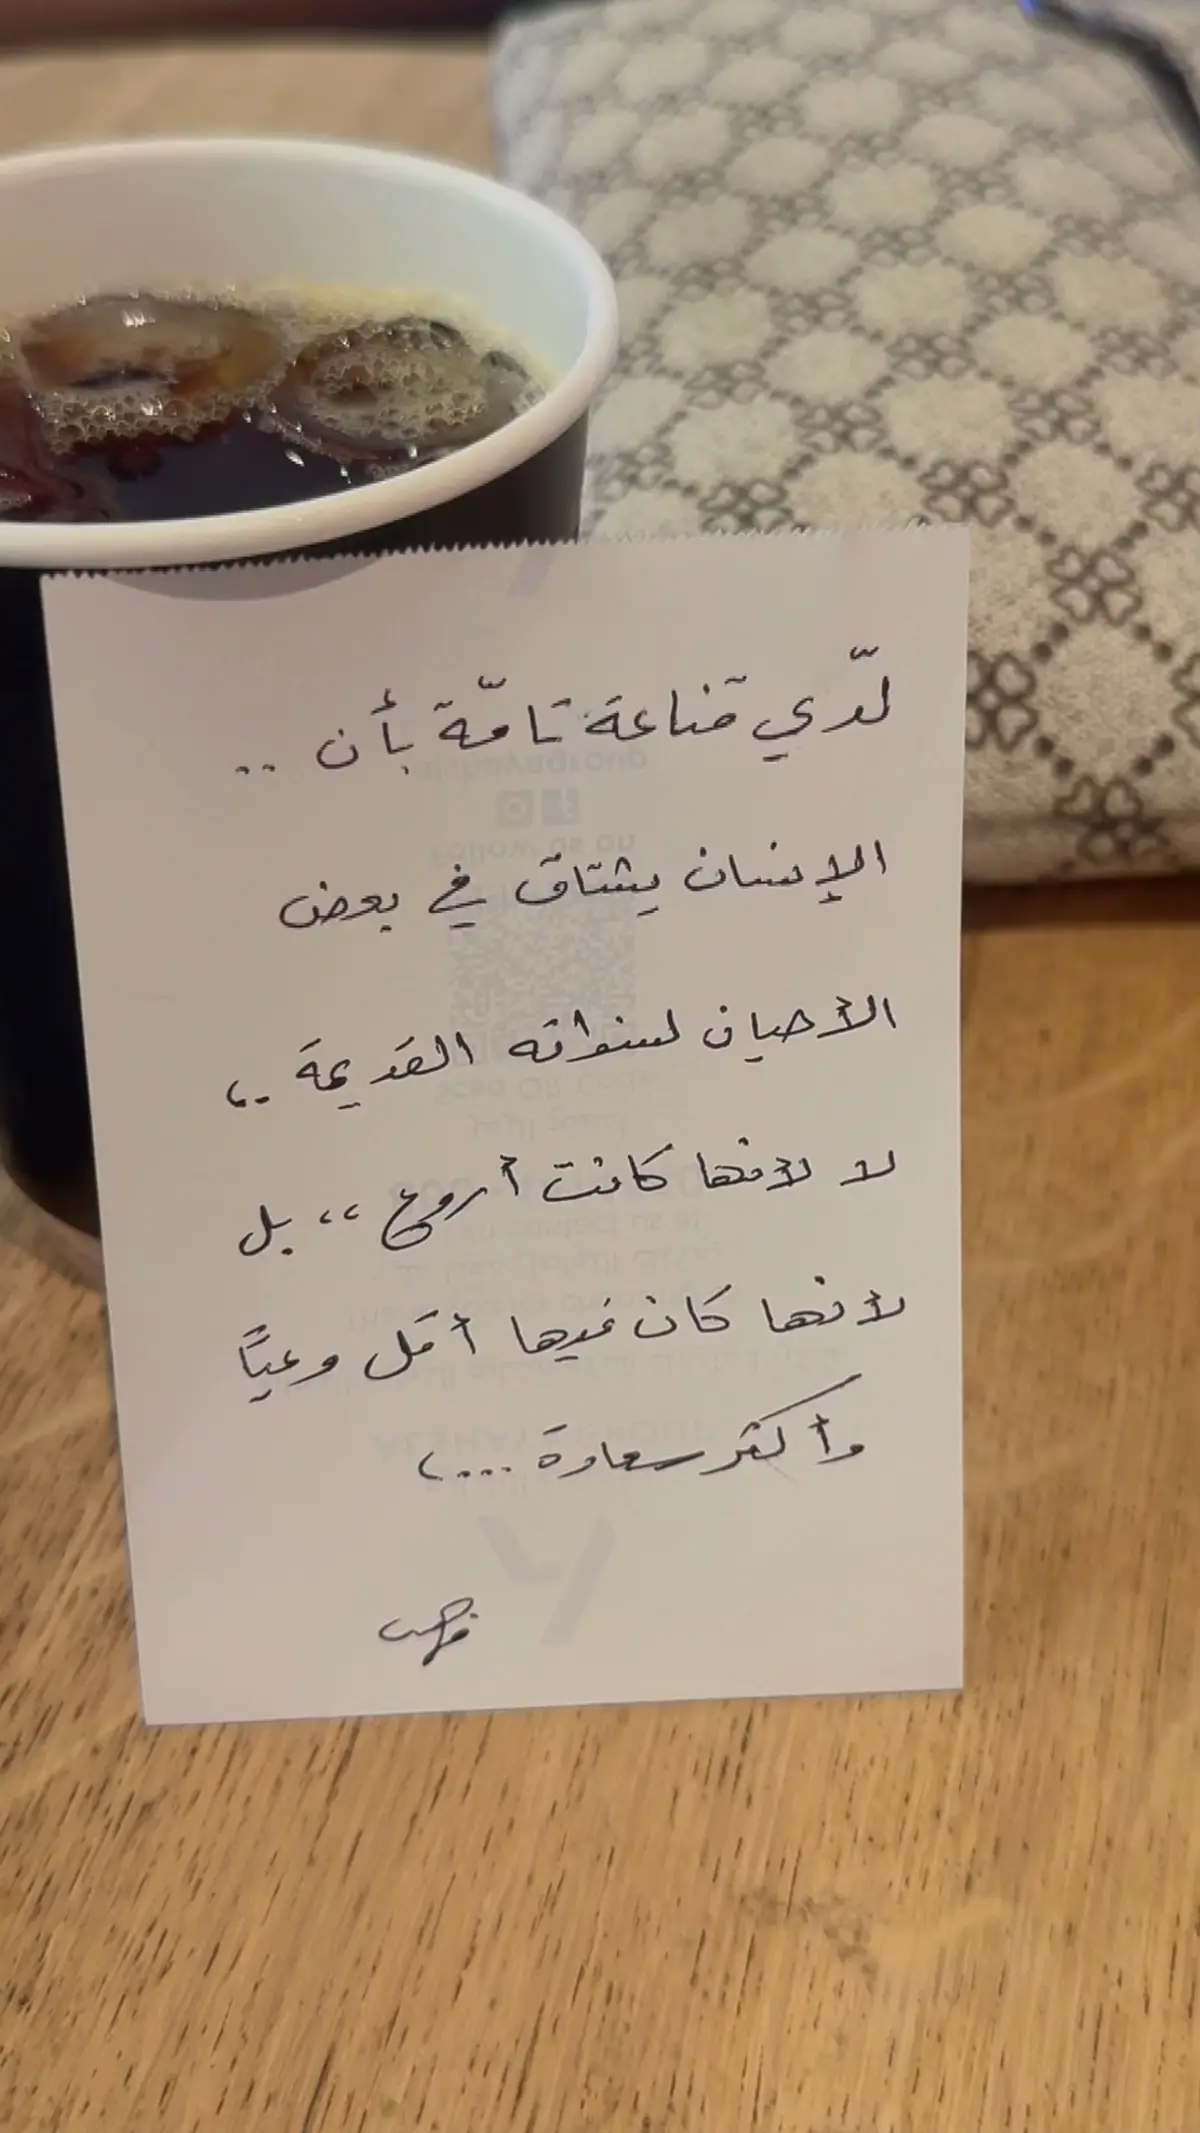 لدّي قناعة تامّة بأن ..
الإنسان يشتاق في بعض
الأحيان لسنواته القديمة ..،
لا لأنها كانت أروع ،، بل
لأنها كان فيها أقل وعيًا
وأكثر سعادة ...،